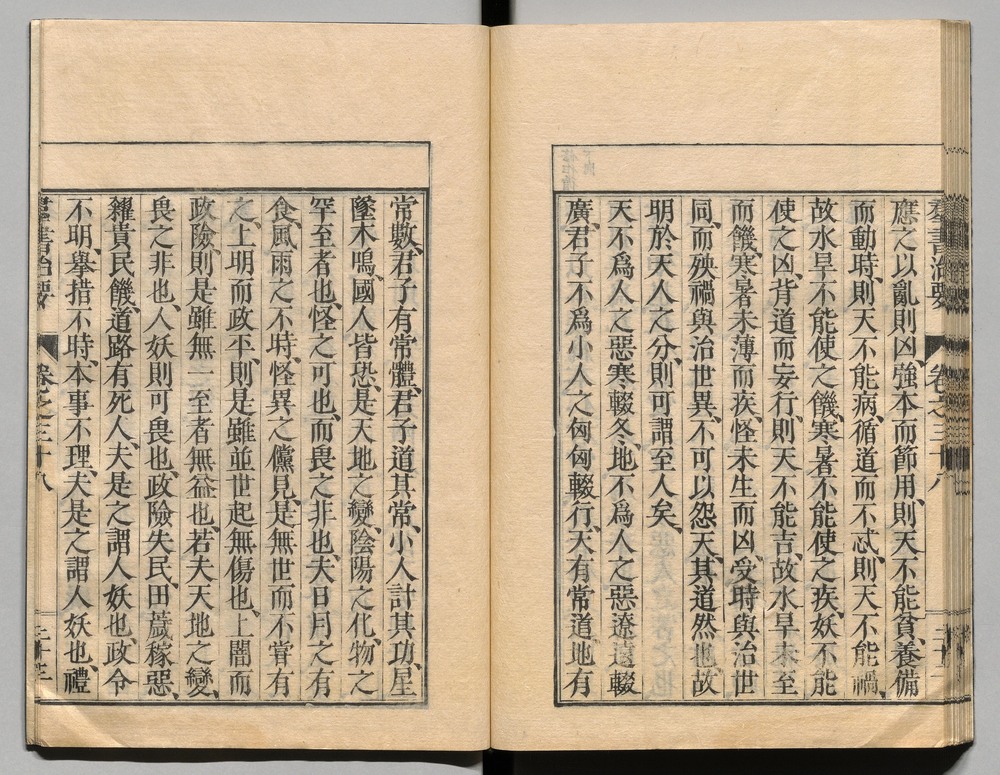 應之以亂則凶、強本而節用、則天不能貧、養備
而動時、則天不能病、循道而不忒、則天不能禍、
故水旱不能使之饑、寒暑不能使之疾、妖不能
使之凶、背道而妄行、則天不能吉、故水旱未至
而饑、寒暑未薄而疾、怪未生而凶、受時與治世
同、而殃禍與治世異、不可以怨天、其道然也、故
明於天人之分、則可謂至人矣、
天不爲人之惡寒輟冬、地不爲人之惡遼遠輟
廣、君子不爲小人之匈匈輟行、天有常道、地有
常數、君子有常體、君子道其常、小人計其功、星
墜木鳴、國人皆恐、是天地之變、陰陽之化、物之
罕至者也、怪之可也、而畏之非也、夫日月之有
食、風雨之不時、怪異之儻見、是無世而不甞有
之、上明而政平、則是雖並世起無傷也、上闇而
政險、則是雖無一至者無益也、若夫天地之變、
畏之非也、人妖則可畏也、政險失民、田薉稼惡、
糴貴民饑、道路有死人、夫是之謂人妖也、政令
不明、擧措不時、本事不理、夫是之謂人妖也、禮
羣書治要 卷之三十八